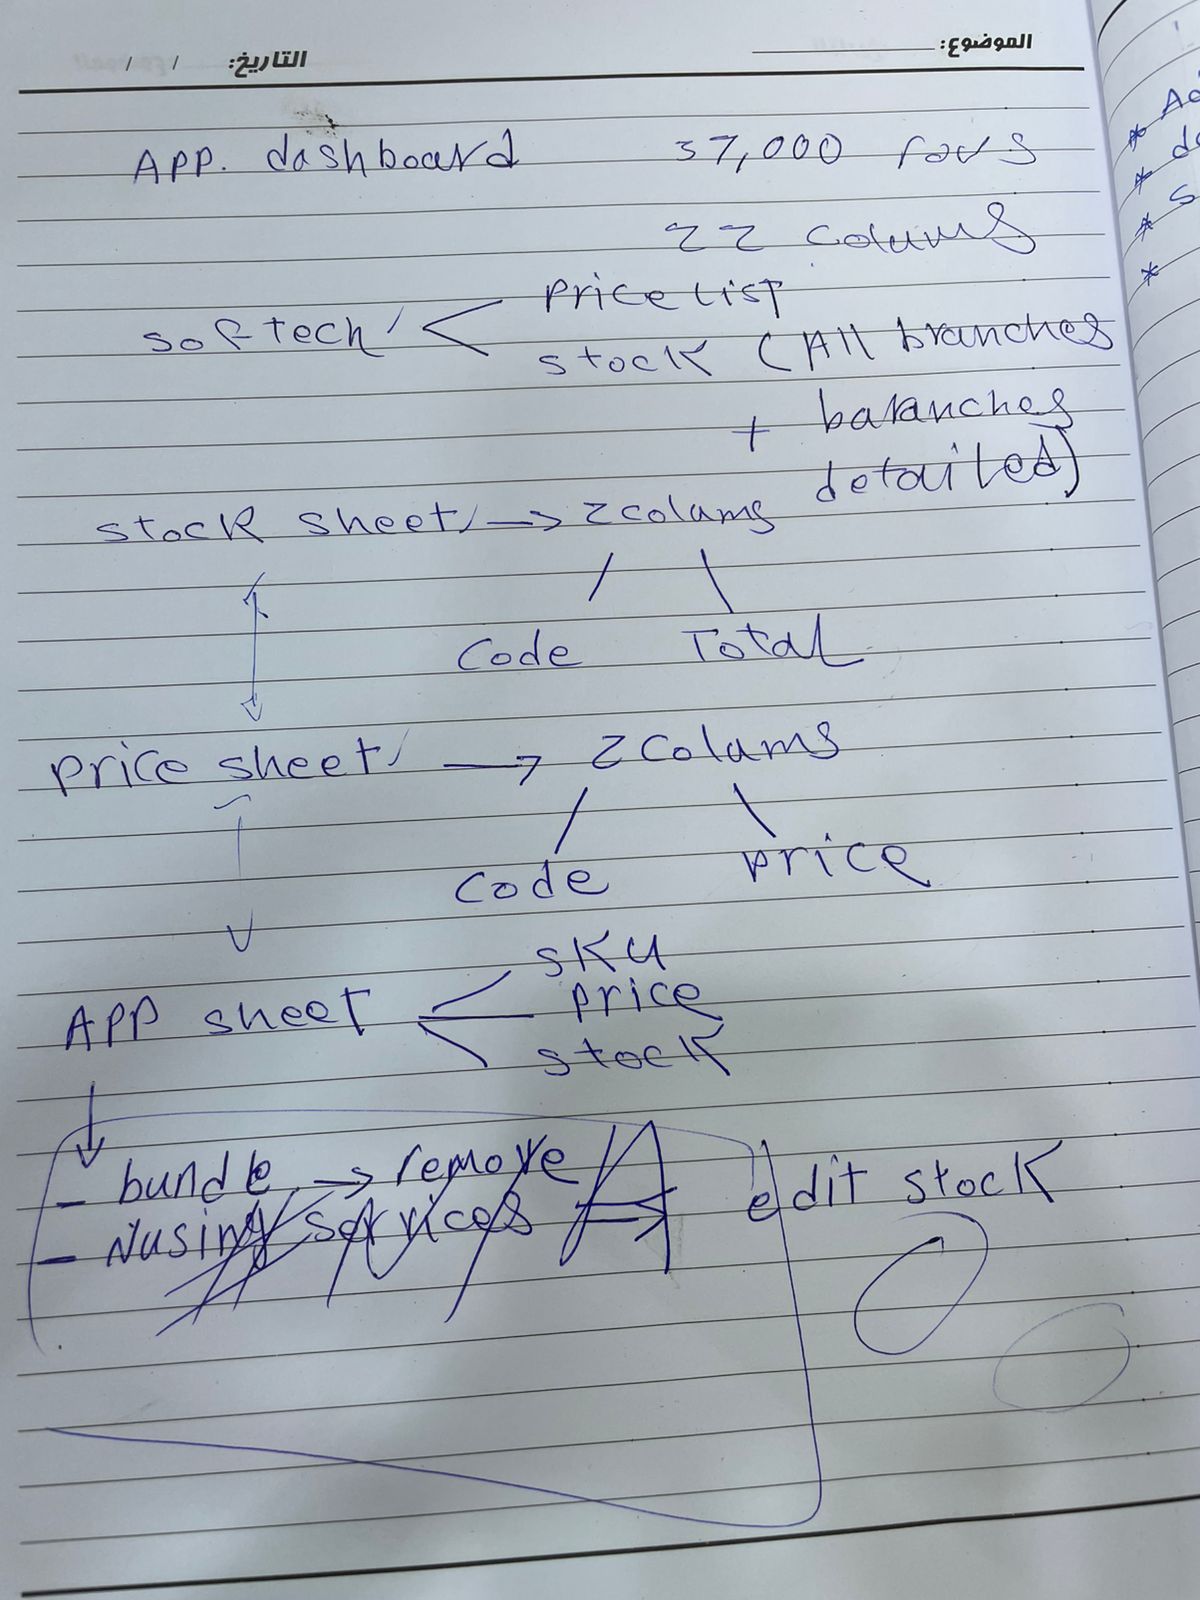 الموضوع:
التاريخ: / /
APP. dashboard 37,000 rows
22 colums
softech
price list
stock (All branches
+ balanches
detailed)
stock sheet → 2 colams
Code Total
price sheet → 2 Colams
Code price
APP sheet
SKU
price
stock
- bundle → remove
- Nusing services → edit stock
* Ad
* de
* S
*